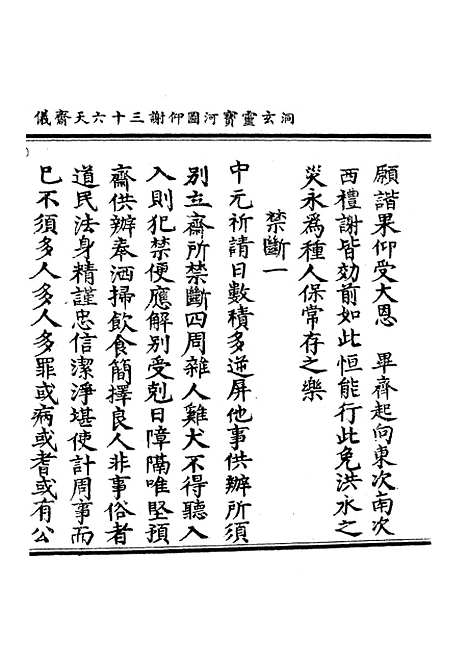 洞玄靈寶河圖仰謝三十六天齋儀
願諧果仰受大恩　畢齊起向東次南次
西禮謝皆効前如此恒能行此免洪水之
災永為種人保常存之樂
禁斷一
中元祈請日數積多逆屏他事供辦所須
別立齋所禁斷四周雜人雞犬不得聽入
入則犯禁便應解別受剋日障隔唯堅預
齋供辦奉洒掃飲食簡擇良人非事俗者
道民法身精謹忠信潔淨堪使計周事而
巳不須多人多人多罪或病或耆或有公